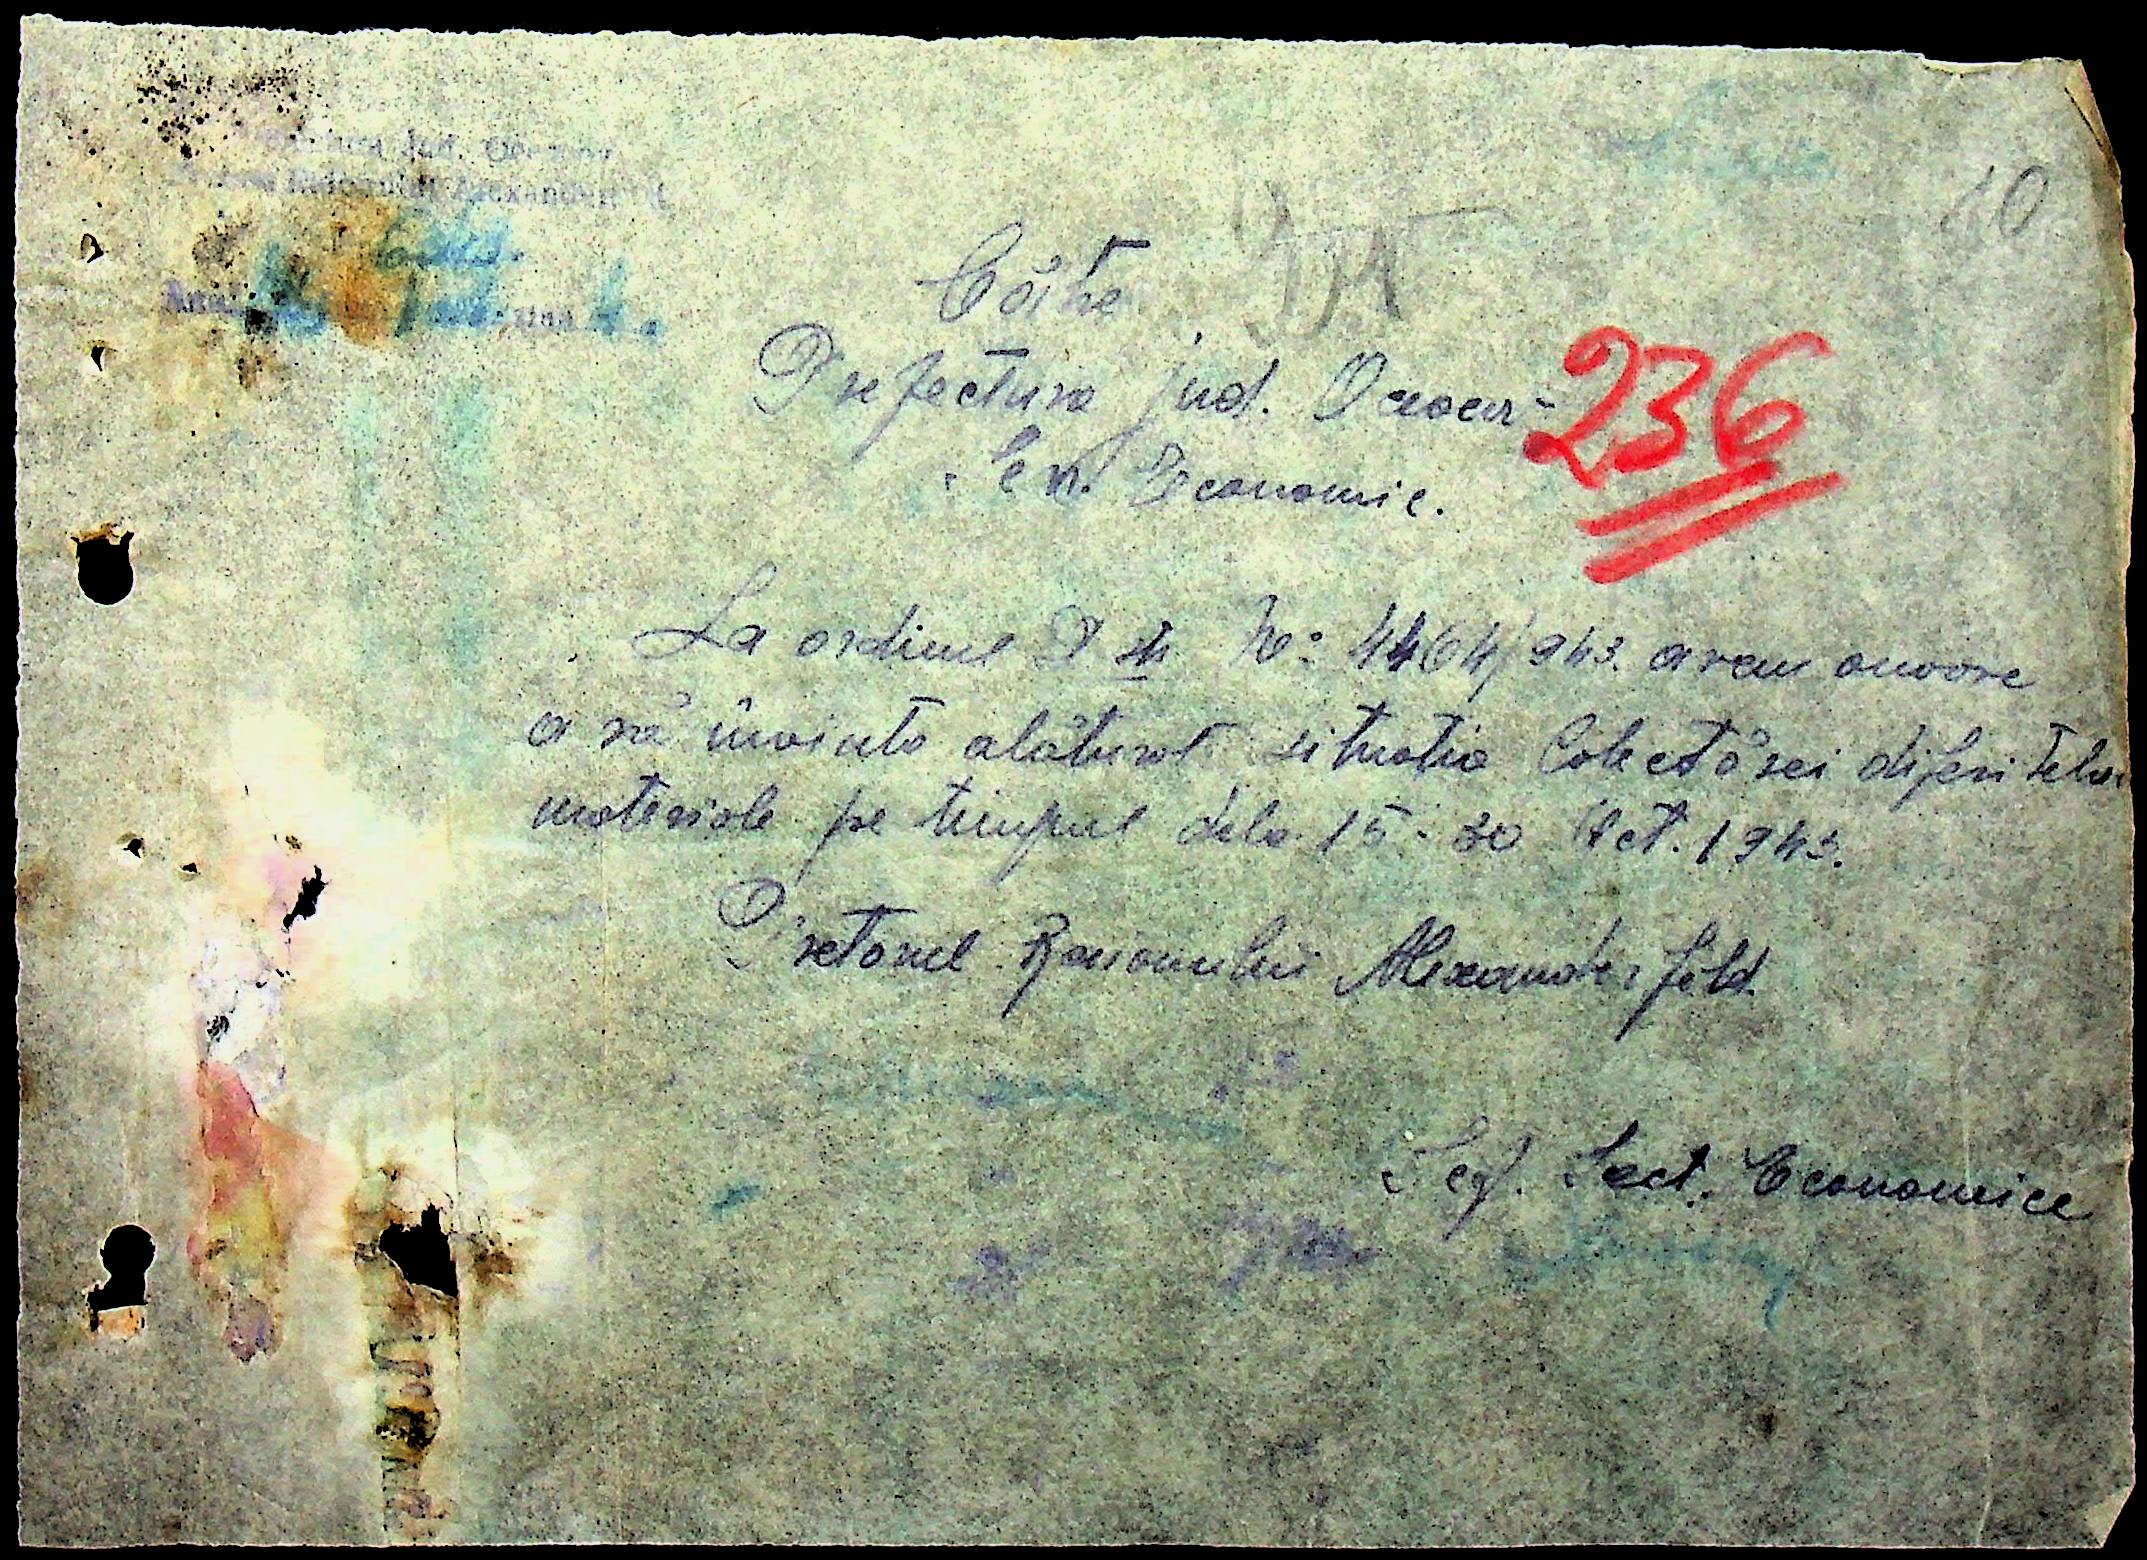 40
Către
Prefectura jud. Oceacov
Serv. Economic.
236
La ordinul D. Nr: 4464/943. avem onoare
a vă înainta alăturat situatia Colectărei diferitelor
materiale pe timpul dela 15-30 Oct. 1943.
Pretorul Raionului Alexanderfeld
Șef. Sect. Economice